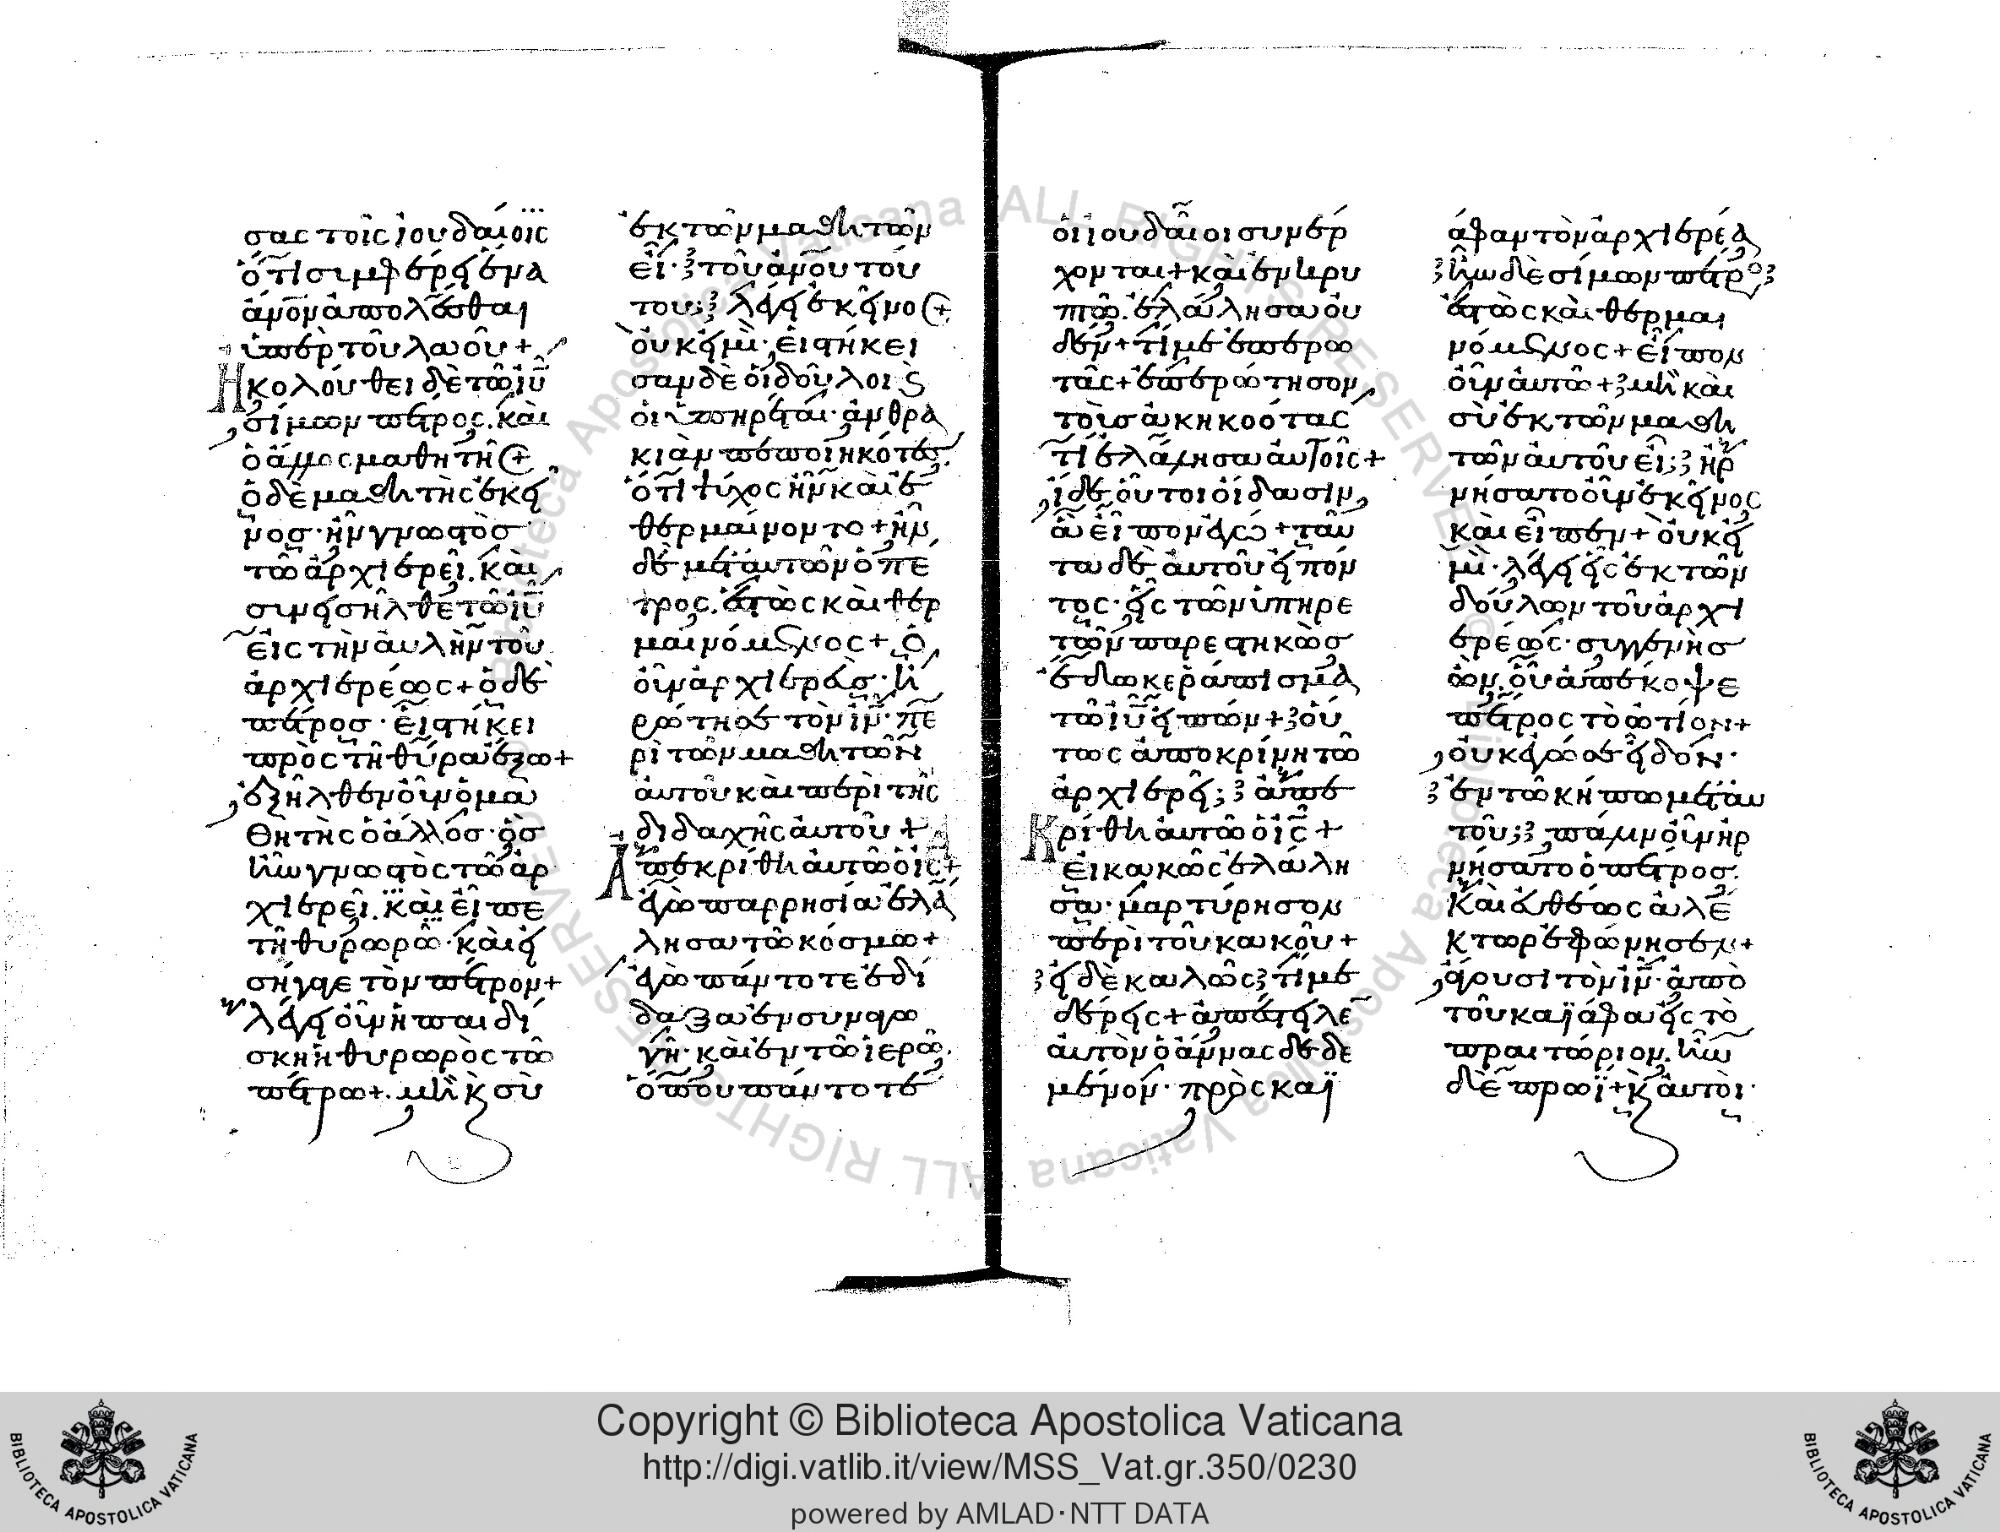 σας τοῖς ἰουδαίοις
ὅτι συμφέρει ἕνα
ἄνον ἀπολέσθαι
ὑπὲρ τοῦ λαοῦ +
Ἠκολούθει δὲ τῶ ιυ
σίμων πέτρος. καὶ
ὁ ἄλλος μαθητὴς +
ὁ δὲ μαθητὴς ἐκεῖ
νος· ἦν γνωστὸς
τῶ ἀρχιερεῖ. καὶ
συνεισῆλθε τῶ ιυ
εἰς τὴν αὐλὴν τοῦ
ἀρχιερέως + ὁ δὲ
πέτρος· εἱστήκει
πρὸς τῆ θύρα ἔξω +
ἐξῆλθεν οὖν ὁ μα
θητὴς ὁ ἄλλος· ὃς
ἦν γνωστὸς τῶ ἀρ
χιερεῖ. καὶ εἶπε
τῆ θυρωρῶ· καὶ εἰ
σήγαγε τὸν πέτρον +
λέγει οὖν ἡ παιδί
σκη ἡ θυρωρὸς τῶ
πέτρω +. μὴ κ σὺ
ἐκ τῶν μαθητῶν
εἶ· τοῦ ἀνοῦ τού
του; λέγει ἐκεῖνος +
οὐκ εἰμὶ· εἱστήκει
σαν δὲ οἱ δοῦλοι κ
οἱ ὑπηρέται· ἀνθρα
κιὰν πεποιηκότες.
ὅτι ψύχος ἦν καὶ ἐ
θερμαίνοντο + ἦν
δὲ μετ' αὐτῶν ὁ πέ
τρος. ἑστὼς καὶ θερ
μαινόμενος + ὁ
οὖν ἀρχιερεὺς· ἠ
ρώτησε τὸν ιν· πε
ρὶ τῶν μαθητῶν
αὐτοῦ καὶ περὶ τῆς
διδαχῆς αὐτοῦ +
Ἀπεκρίθη αὐτῶ ὁ ις +
ἐγὼ παρρησία ἐλά
λησα τῶ κόσμω +
ἐγὼ πάντοτε ἐδί
δαξα ἐν συναγω
γῆ· καὶ ἐν τῶ ἱερῶ.
ὅπου πάντοτε
οἱ ἰουδαῖοι συνέρ
χονται + καὶ ἐν κρυ
πτῶ. ἐλάλησα οὐ
δέν + τί με ἐπερω
τᾶς + ἐπερώτησον
τοὺς ἀκηκοότας
τί ἐλάλησα αὐτοῖς +
ἴδε οὗτοι οἴδασιν
ἃ εἶπον ἐγώ + ταῦ
τα δὲ αὐτοῦ εἰπόν
τος· εἷς τῶν ὑπηρε
τῶν παρεστηκὼς
ἔδωκε ῥάπισμα
τῶ ιυ εἰπών + οὕ
τως ἀποκρίνη τῶ
ἀρχιερεῖ; ἀπε
Κρίθη αὐτῶ ὁ ις +
εἰ κακῶς ἐλάλη
σα· μαρτύρησον
περὶ τοῦ κακοῦ +
εἰ δὲ καλῶς τί με
δέρεις + ἀπέστειλε
αὐτὸν ὁ ἄννας δεδε
μένον· πρὸς καϊ
άφαν τὸν ἀρχιερέα
ἦν δὲ σίμων πέτρος
ἑστὼς καὶ θερμαι
νόμενος + εἶπον
οὖν αὐτῶ + μὴ καὶ
σὺ ἐκ τῶν μαθη
τῶν αὐτοῦ εἶ; ἠρ
νήσατο οὖν ἐκεῖνος
καὶ εἶπεν + οὐκ εἰ
μὶ· λέγει εἷς ἐκ τῶν
δούλων τοῦ ἀρχι
ερέως· συγγενὴς
ὢν. οὗ ἀπέκοψε
πέτρος τὸ ὠτίον +
οὐκ ἐγώ σε εἶδον·
ἐν τῶ κήπω μετ' αυ
τοῦ; πάλιν οὖν ἠρ
νήσατο ὁ πέτρος.
Καὶ εὐθέως ἀλέ
κτωρ ἐφώνησεν +
ἄγουσι τὸν ιν· ἀπὸ
τοῦ καϊάφα εἰς τὸ
πραιτώριον. ἦν
δὲ πρωΐ + κ αὐτοὶ·
Copyright © Biblioteca Apostolica Vaticana
http://digi.vatlib.it/view/MSS_Vat.gr.350/0230
powered by AMLAD·NTT DATA